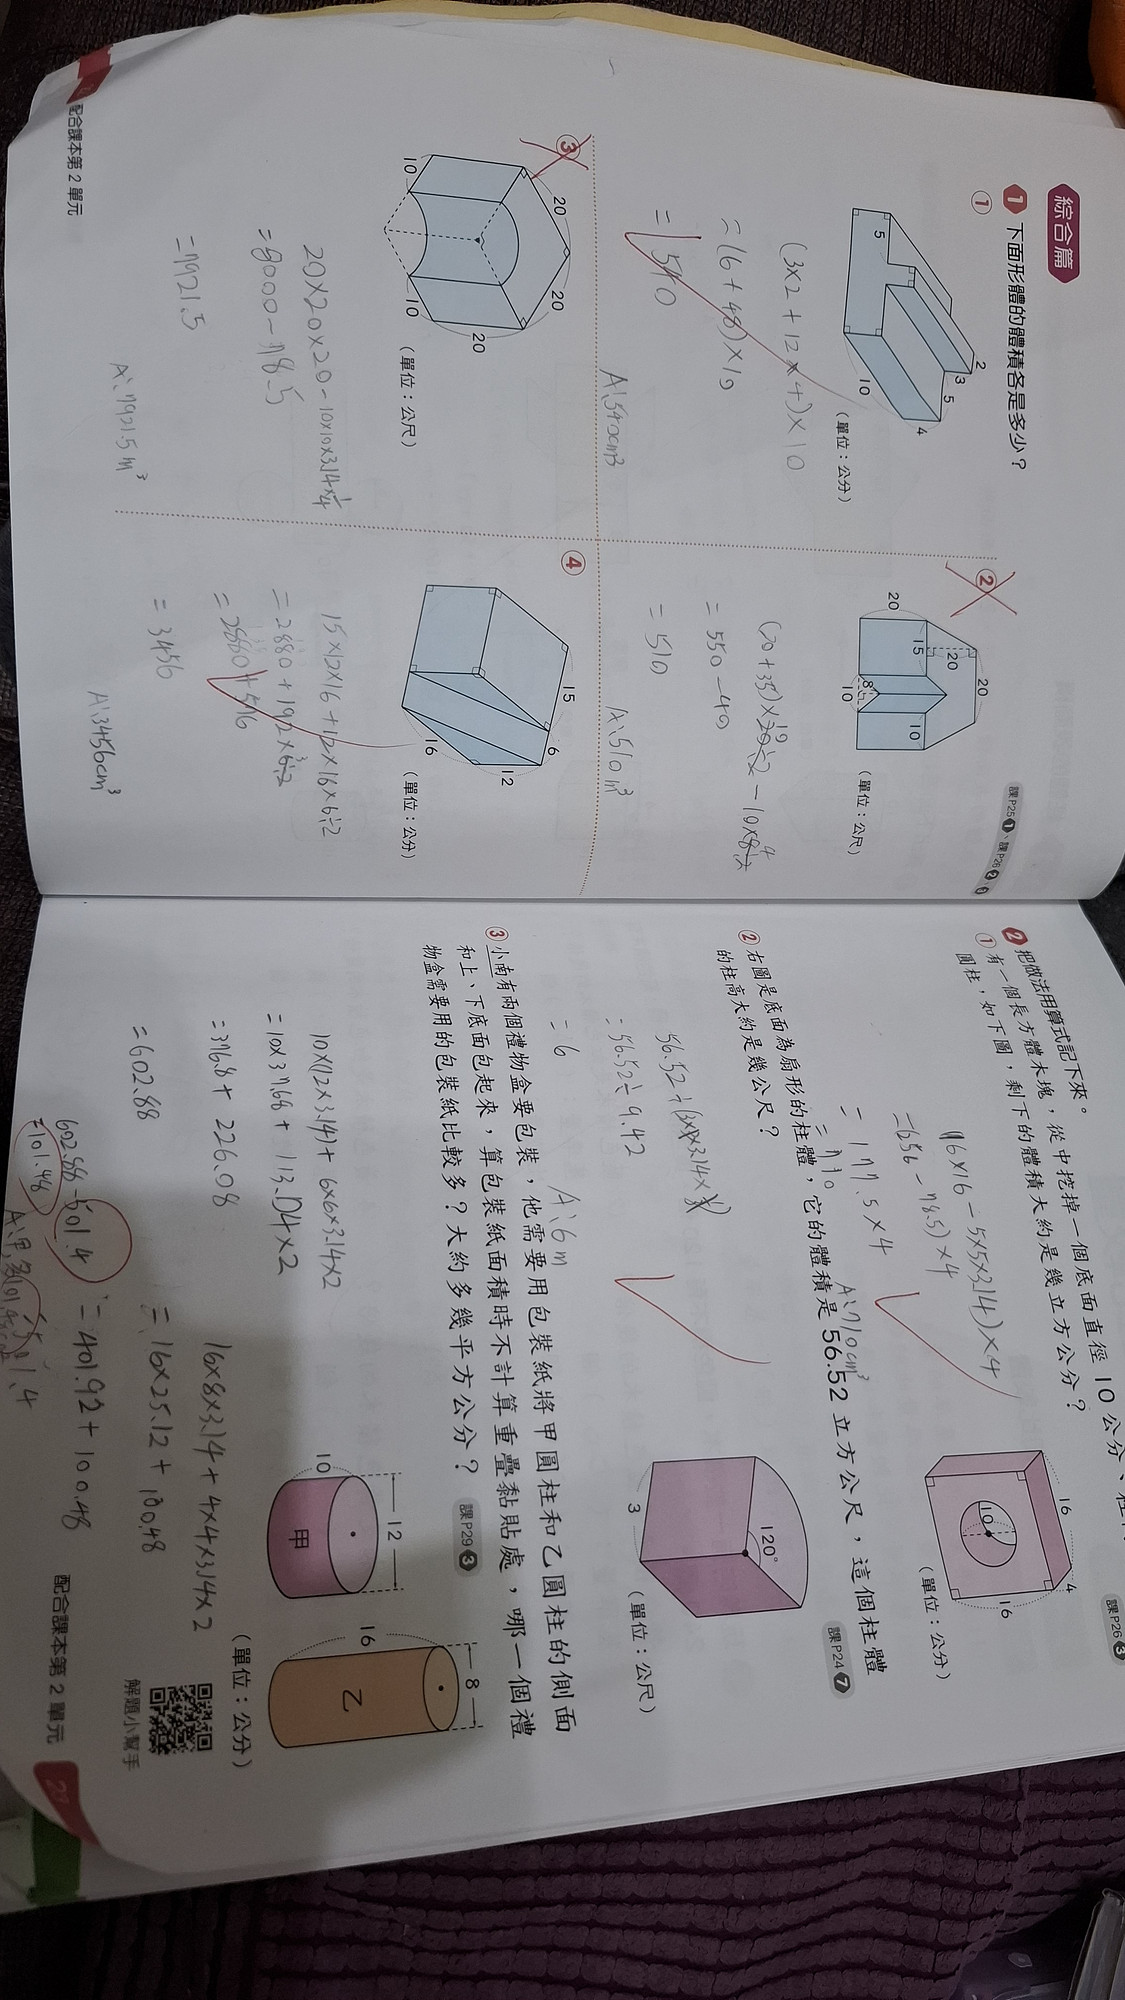 綜合篇
課P25❶、課P26❷、❸
1 下面形體的體積各是多少？
①
2
3
5
4
5
10
（單位：公分）
(3×2+12×4)×10
=(6+48)×10
=540
A:540cm³
②
20
20
15
20
8
10
10
（單位：公尺）
(20+35)×20÷2-10×8÷2
=550-40
=510
A:510m³
③
20
20
10
10
20
（單位：公尺）
20×20×20-10×10×3.14×¼
=8000-78.5
=7921.5
A:7921.5m³
④
15
6
12
16
（單位：公分）
15×12×16+12×16×6÷2
=2880+192×6÷2
=2880+576
=3456
A:3456cm³
配合課本第2單元
2 把做法用算式記下來。
①有一個長方體木塊，從中挖掉一個底面直徑 10 公分、
圓柱，如下圖，剩下的體積大約是幾立方公分？
課P26❸
(16×16-5×5×3.14)×4
=(256-78.5)×4
=177.5×4
=710
A:710cm³
16
4
16
10
（單位：公分）
②右圖是底面為扇形的柱體，它的體積是 56.52 立方公尺，這個柱體
的柱高大約是幾公尺？
課P24❼
56.52÷(3×3×3.14×⅓)
=56.52÷9.42
=6
A:6m
120°
3
（單位：公尺）
③小南有兩個禮物盒要包裝，他需要用包裝紙將甲圓柱和乙圓柱的側面
和上、下底面包起來，算包裝紙面積時不計算重疊黏貼處，哪一個禮
物盒需要用的包裝紙比較多？大約多幾平方公分？
課P29❸
10×(12×3.14)+6×6×3.14×2
=10×37.68+113.04×2
=376.8+226.08
=602.88
16×8×3.14+4×4×3.14×2
=16×25.12+100.48
=401.92+100.48
602.88-501.4
=101.48
12
10
甲
8
16
乙
（單位：公分）
解題小幫手
配合課本第2單元